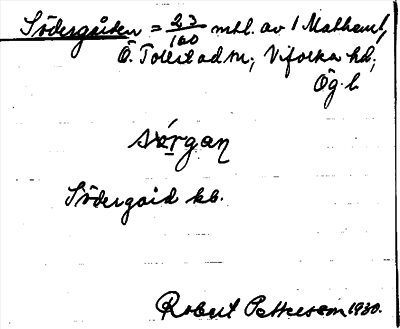 Södergården = 23/100 mtl. av 1 Mathem,
Ö. Tollstad sn; Vifolka hd;
Ög. l.
sörgan
Södergård kb.
Robert Pettersson 1930.